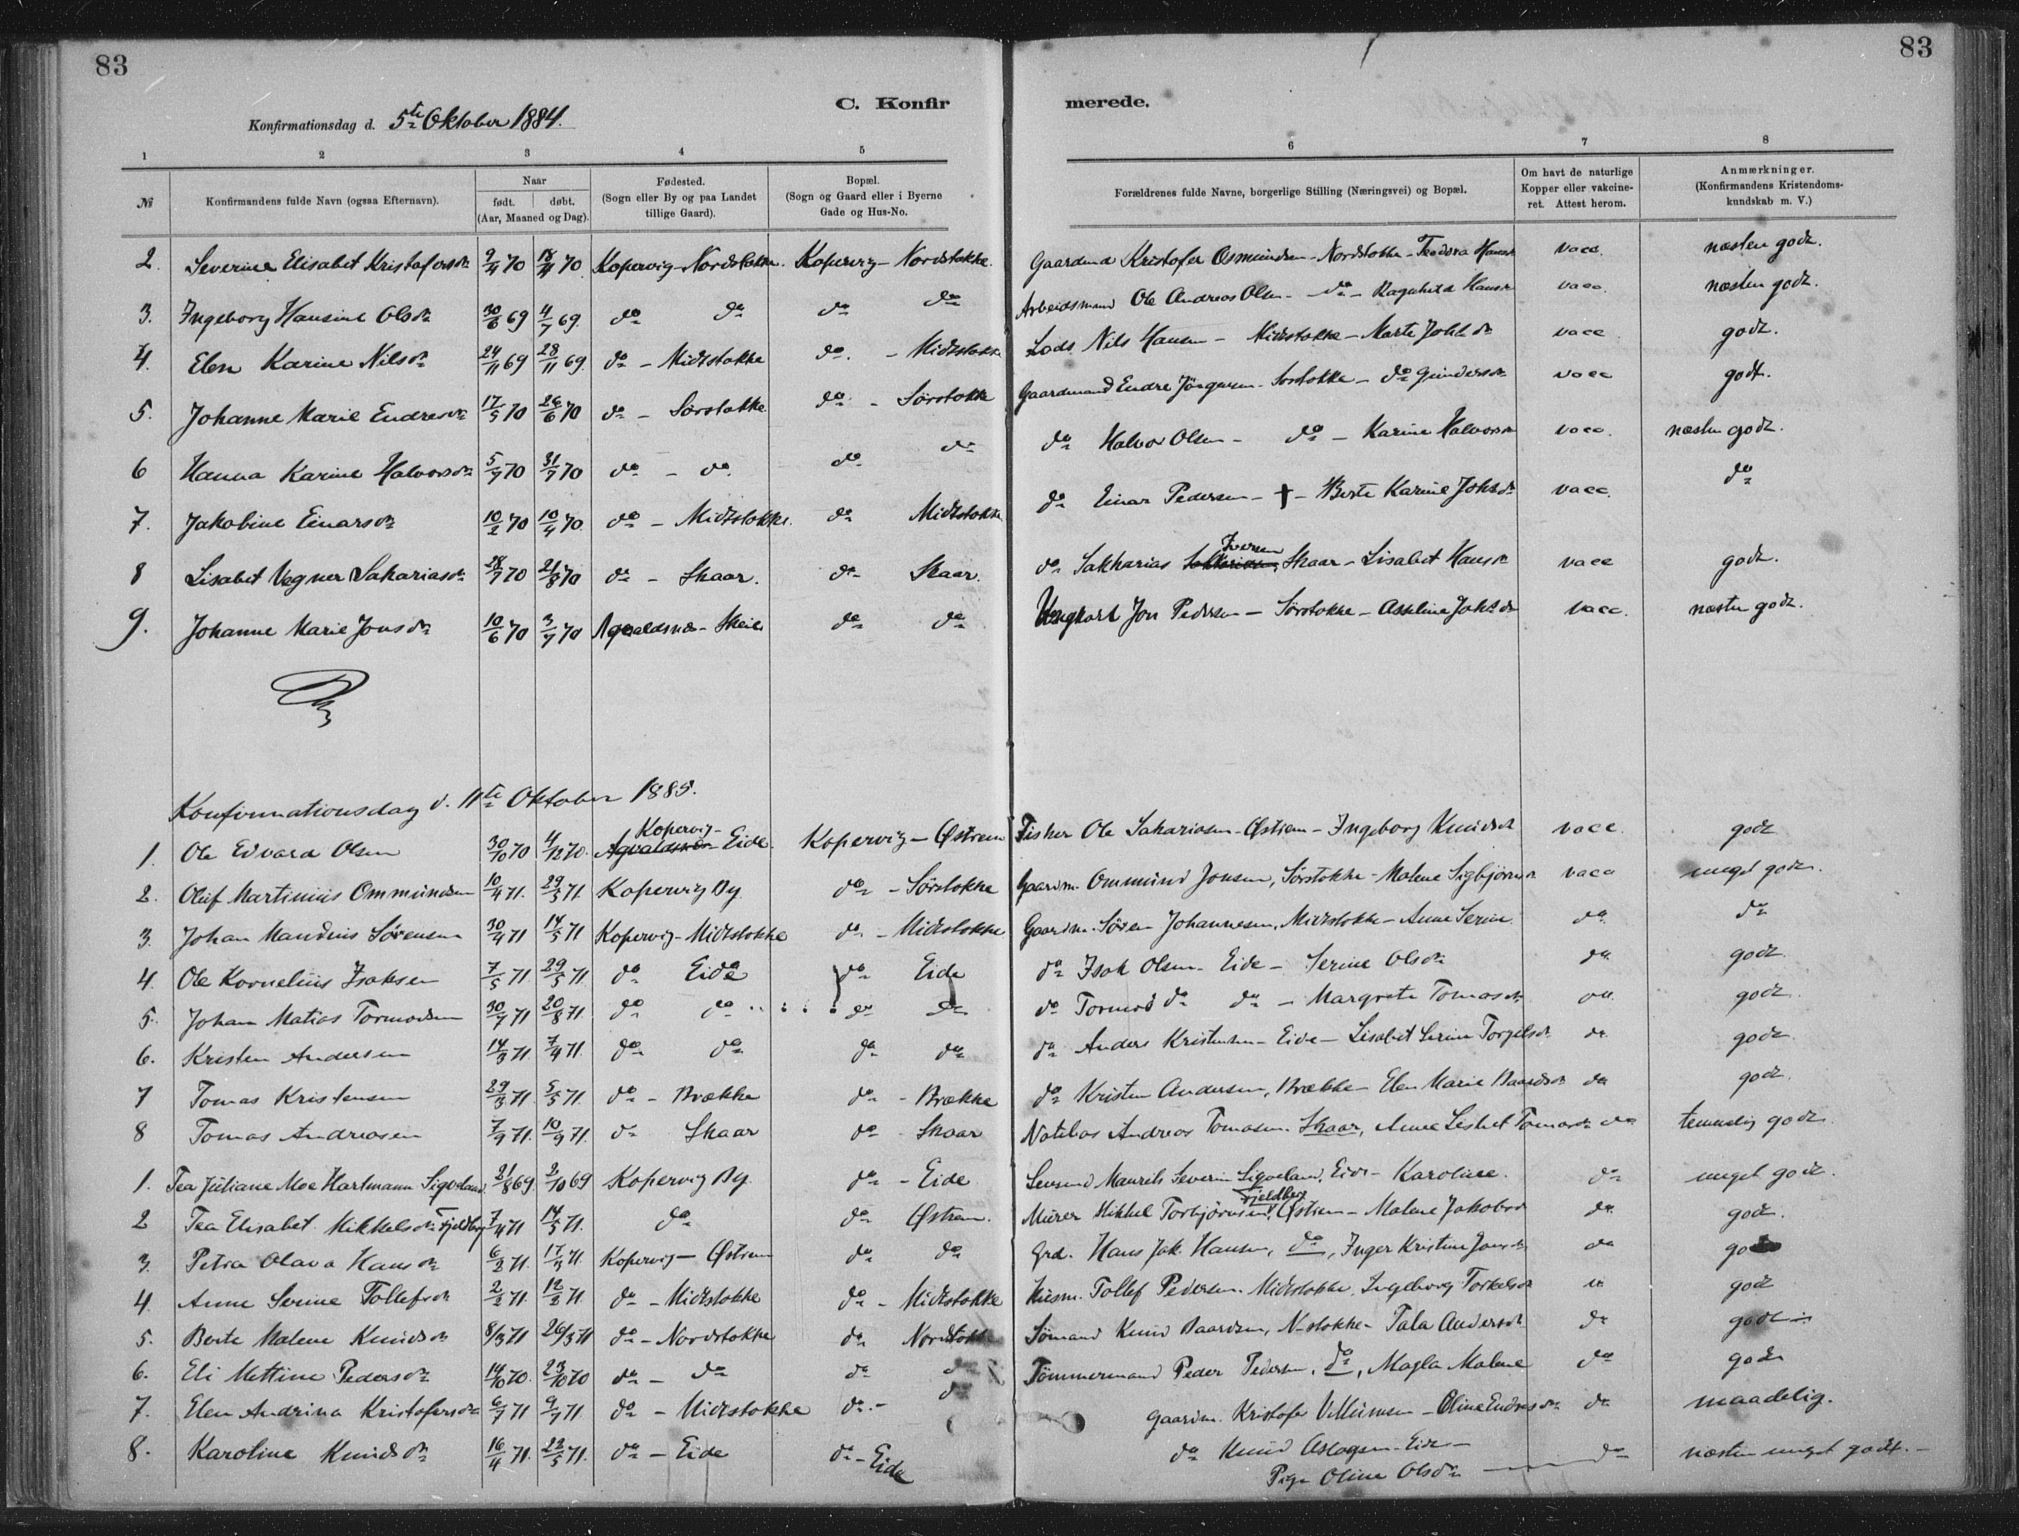 83
83
C. Konfir
merede.
Konfirmationsdag d. 5te Oktober 1884.
1 2 3 4 5 6 7 8
№ Konfirmandens fulde Navn (ogsaa Efternavn). Naar født. døbt. (Aar, Maaned og Dag). Fødested. (Sogn eller By og paa Landet tillige Gaard). Bopæl. (Sogn og Gaard eller i Byerne Gade og Hus-No. Forældrenes fulde Navne, borgerlige Stilling (Næringsvei) og Bopæl. Om havt de naturlige Kopper eller vakcineret. Attest herom. Anmærkninger. (Konfirmandens Kristendomskundskab m. V.)
2. Severine Elisabet Kristofersdr 9/4 70 70 Kopervig - Nordstokke. Kopervig - Nordstokke. Gaardmd Kristofer Osmundsen - Nordstokke - Teodora Hansdr vacc. næsten godt.
3. Ingeborg Hansine Olsdr 30/6 69 4/7 69. do do do do Arbeidsmand Ole Andreas Olsen - do - Ragnhild Hansdr vacc. næsten godt.
4. Elen Karine Nilsdr 24/11 69 28/11 69. do - Midtstokke do. - Midtstokke Lods Nils Hansen - Midtstokke - Marte Johsdr vacc godt.
5. Johanne Marie Endresdr 17/5 70 26/6 70 do - Sørstokke do - Sørstokke Gaardmand Endre Jørgensen - Sørstokke - do Gundersdr vacc godt.
6 Hanna Karine Halvorsdr 5/7 70 31/7 70 do - do. do do do Halvor Olsen - do - Karine Halvorsdr vacc. næsten godt.
7. Jakobine Einarsdr 10/2 70 10/4 70. do - Midtstokke. do Midtstokke do Einar Pedersen - † - Berte Karine Johsdr vacc. do
8 Lisabet Vegner Sakariasdr 28/7 70 21/8 70 do - Skaar. do Skaar. do Sakharias Iversen Skaar - Lisabet Hansdr vacc godt.
9. Johanne Marie Jonsdr 10/6 70 3/7 70 Avaldsnæs - Skeie do do Ungkarl Jon Pedersen - Sørstokke - Asseline Johsdr vacc. næsten godt.
Konfirmationsdag d. 11te Oktober 1885.
1. Ole Edvard Olsen 30/10 70 4/12 70. Kopervig - Eide. Kopervig - Østrem Fisker Ole Sakariasen - Østrem - Ingeborg Knudsdr vacc. godt
2. Oluf Martinius Ommundsen 10/4 71. 29/5 71 Kopervig By do - Sørstokke Gaardm. Ommund Jonsen, Sørstokke - Malene Sigbjørnsdr vacc meget godt.
3. Johan Maudius Sørensen 30/4 71 14/5 71 Kopervig - Midtstokke do. - Midtstokke Gaardm. Søren Johannesen, Midtstokke - Anne Serine do. do
4. Ole Kornelius Isaksen 7/5 71 29/5 71. do Eide do Eide do Isak Olsen - Eide - Serine Olsdr do. godt.
5. Johan Matias Tormodsen 30/7 71 20/8 71 do do do do do Tormod do do - Margrete Tomasdr do godt.
6. Kristen Andersen 14/3 71 7/4 71. do do do do do Anders Kristensen - Eide - Lisabet Serine Torgilsdr do godt.
7 Tomas Kristensen 29/3 71. 5/5 71. do - Brække do - Brække do Kristen Andersen, Brække - Elen Marie Baardsdr do godt.
8 Tomas Andreasen 7/9 71. 10/9 71. do Skaar do - Skaar Andreas Tomasen. Skaar, Anne Tomasdr do temmelig godt
1. Tea Juliane Moe Hartmann Sigveland. 21/8 69. 2/10 69 Kopervig By. do - Eide Maurits Severin Sigveland, Eide - Karoline. do meget godt.
2 Tea Elisabet Mikkelsdr Fjeldberg 7/4 71 14/5 71. do do Østrem. Murer Mikkel Torbjørnsen Fjeldberg, Østrem - Malene Jakobsdr do. godt.
3. Petra Olava Hansdr 6/2 71. 17/3 71. Kopervig - Østrem do do Grd. Hans Jak. Hansen, do, Inger Kristine Jonsdr do
4. Anne Serine Tollefsdr 2/2 71. 12/2 71. do - Midtstokke do - Midtstokke Husm. Tollef Pedersen. Midtstokke, Ingeborg Torkelsdr godt
5. Berte Malene Knudsdr 8/3 71 26/3 71 do - Nordstokke do Nordstokke Sømand Knud Baardsen, N-stokke - Tala Andersdr do godt
6. Eli Mettine Pedersdr 14/10 70. 23/10 70 do - do do do Tømmermand Peder Pedersen, do, Magla Malene do godt
7. Elen Andrina Kristofersdr 6/7 71 9/7 71. do - Midtstokke do. - do Gaardm. Kristofer Villumsen - Oline Endresdr do maadelig.
8. Karoline Knudsdr 16/4 71. 22/5 71. do - Eide do - Eide do Knud Aslagsen Eide -
Pige Oline Olsdr do næsten meget godt. -